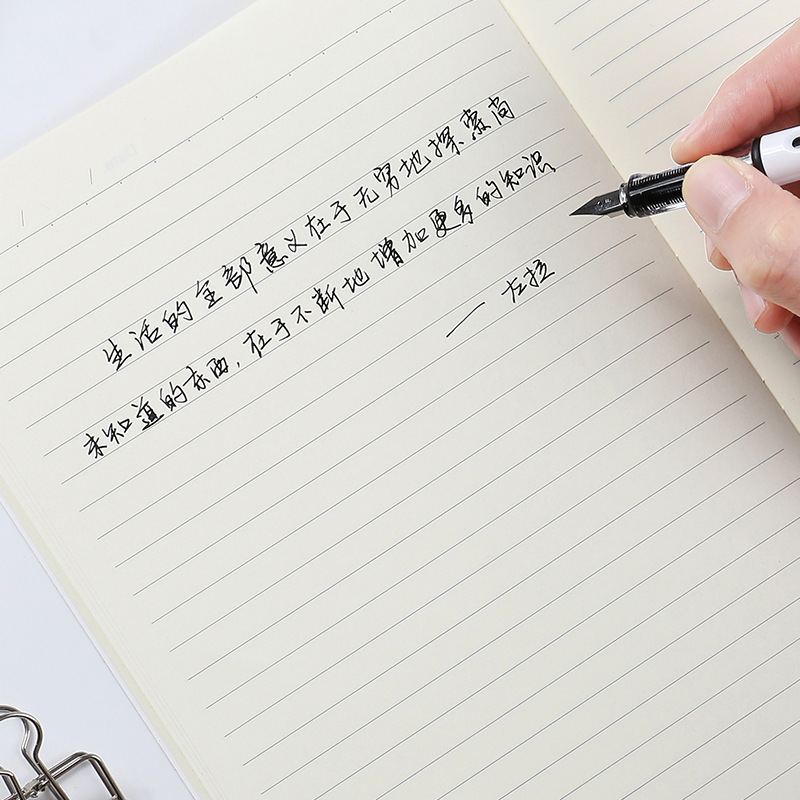 生活的全部意义在于无穷地探索尚
未知道的东西,在于不断地增加更多的知识
—— 左拉